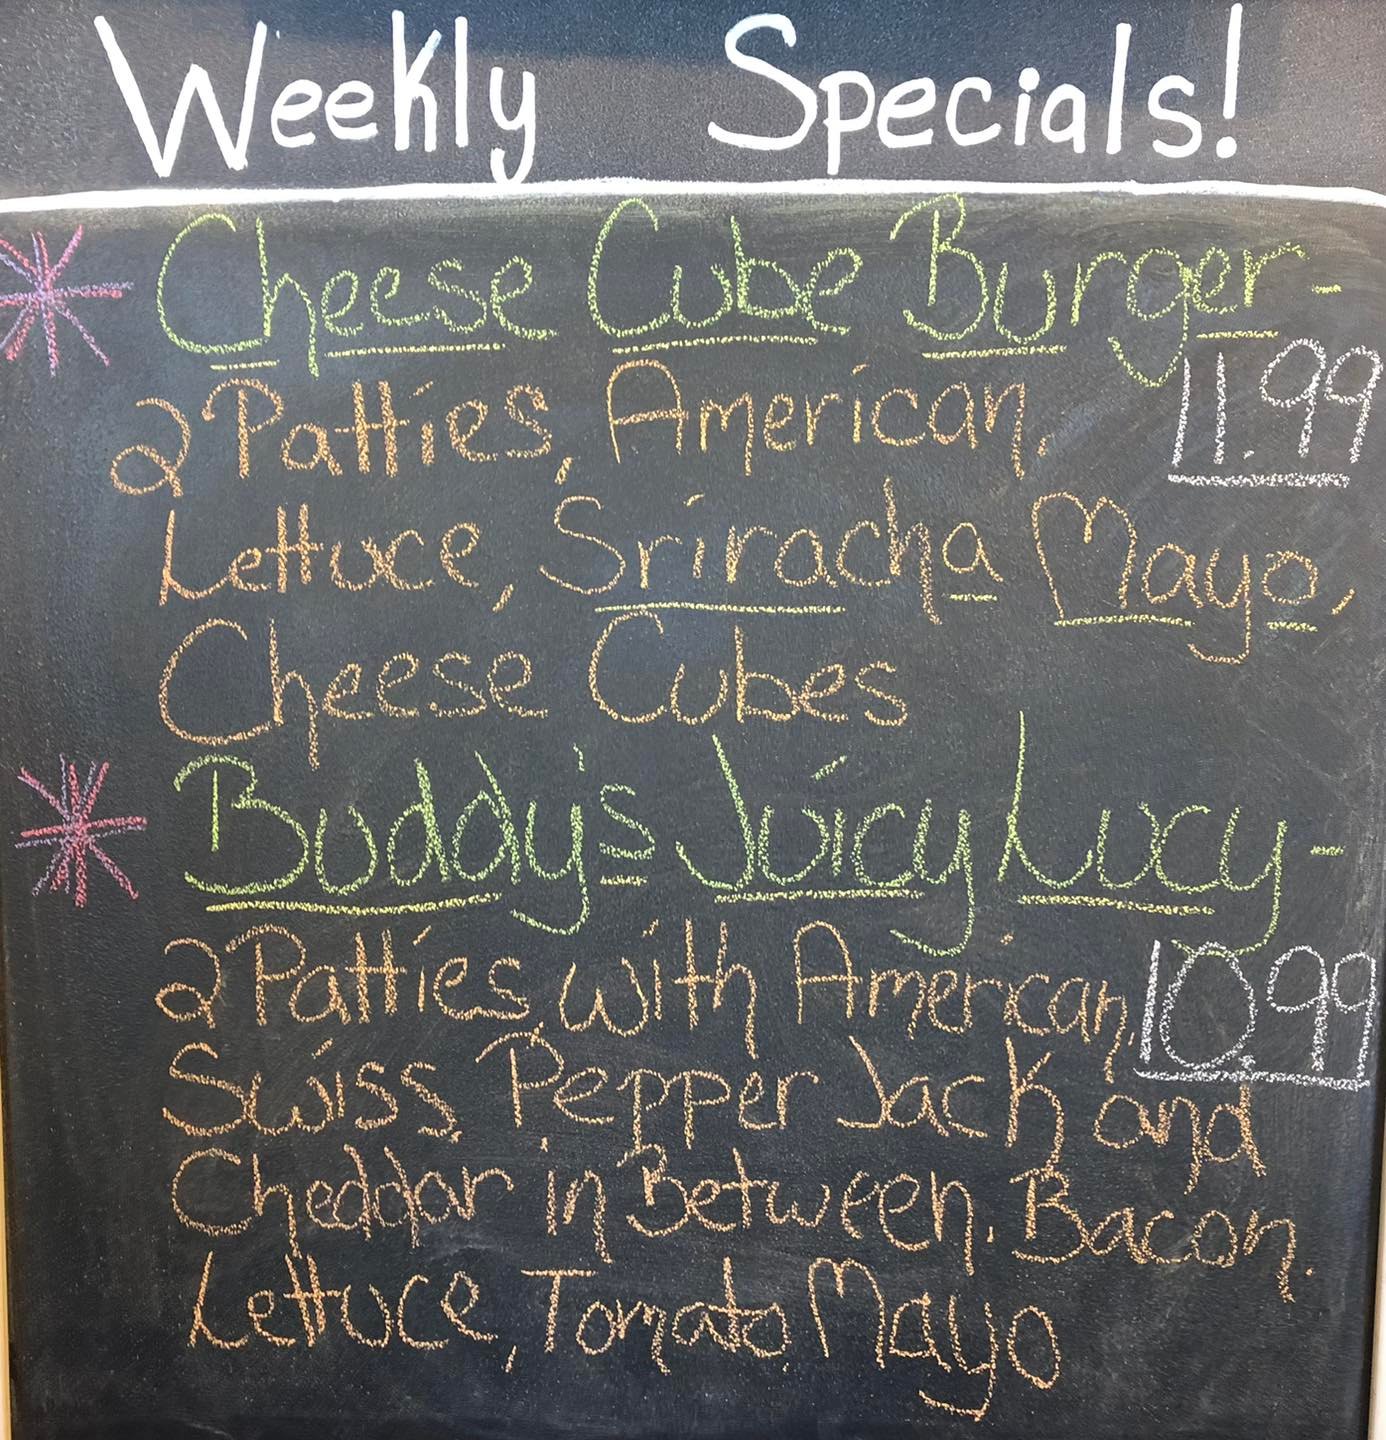 Weekly Specials!
Cheese Cube Burger-
11.99
2 Patties, American,
Lettuce, Sriracha Mayo,
Cheese Cubes
Buddy's Juicy Lucy-
10.99
2 Patties with American,
Swiss, Pepper Jack and
Cheddar in Between, Bacon,
Lettuce, Tomato, Mayo